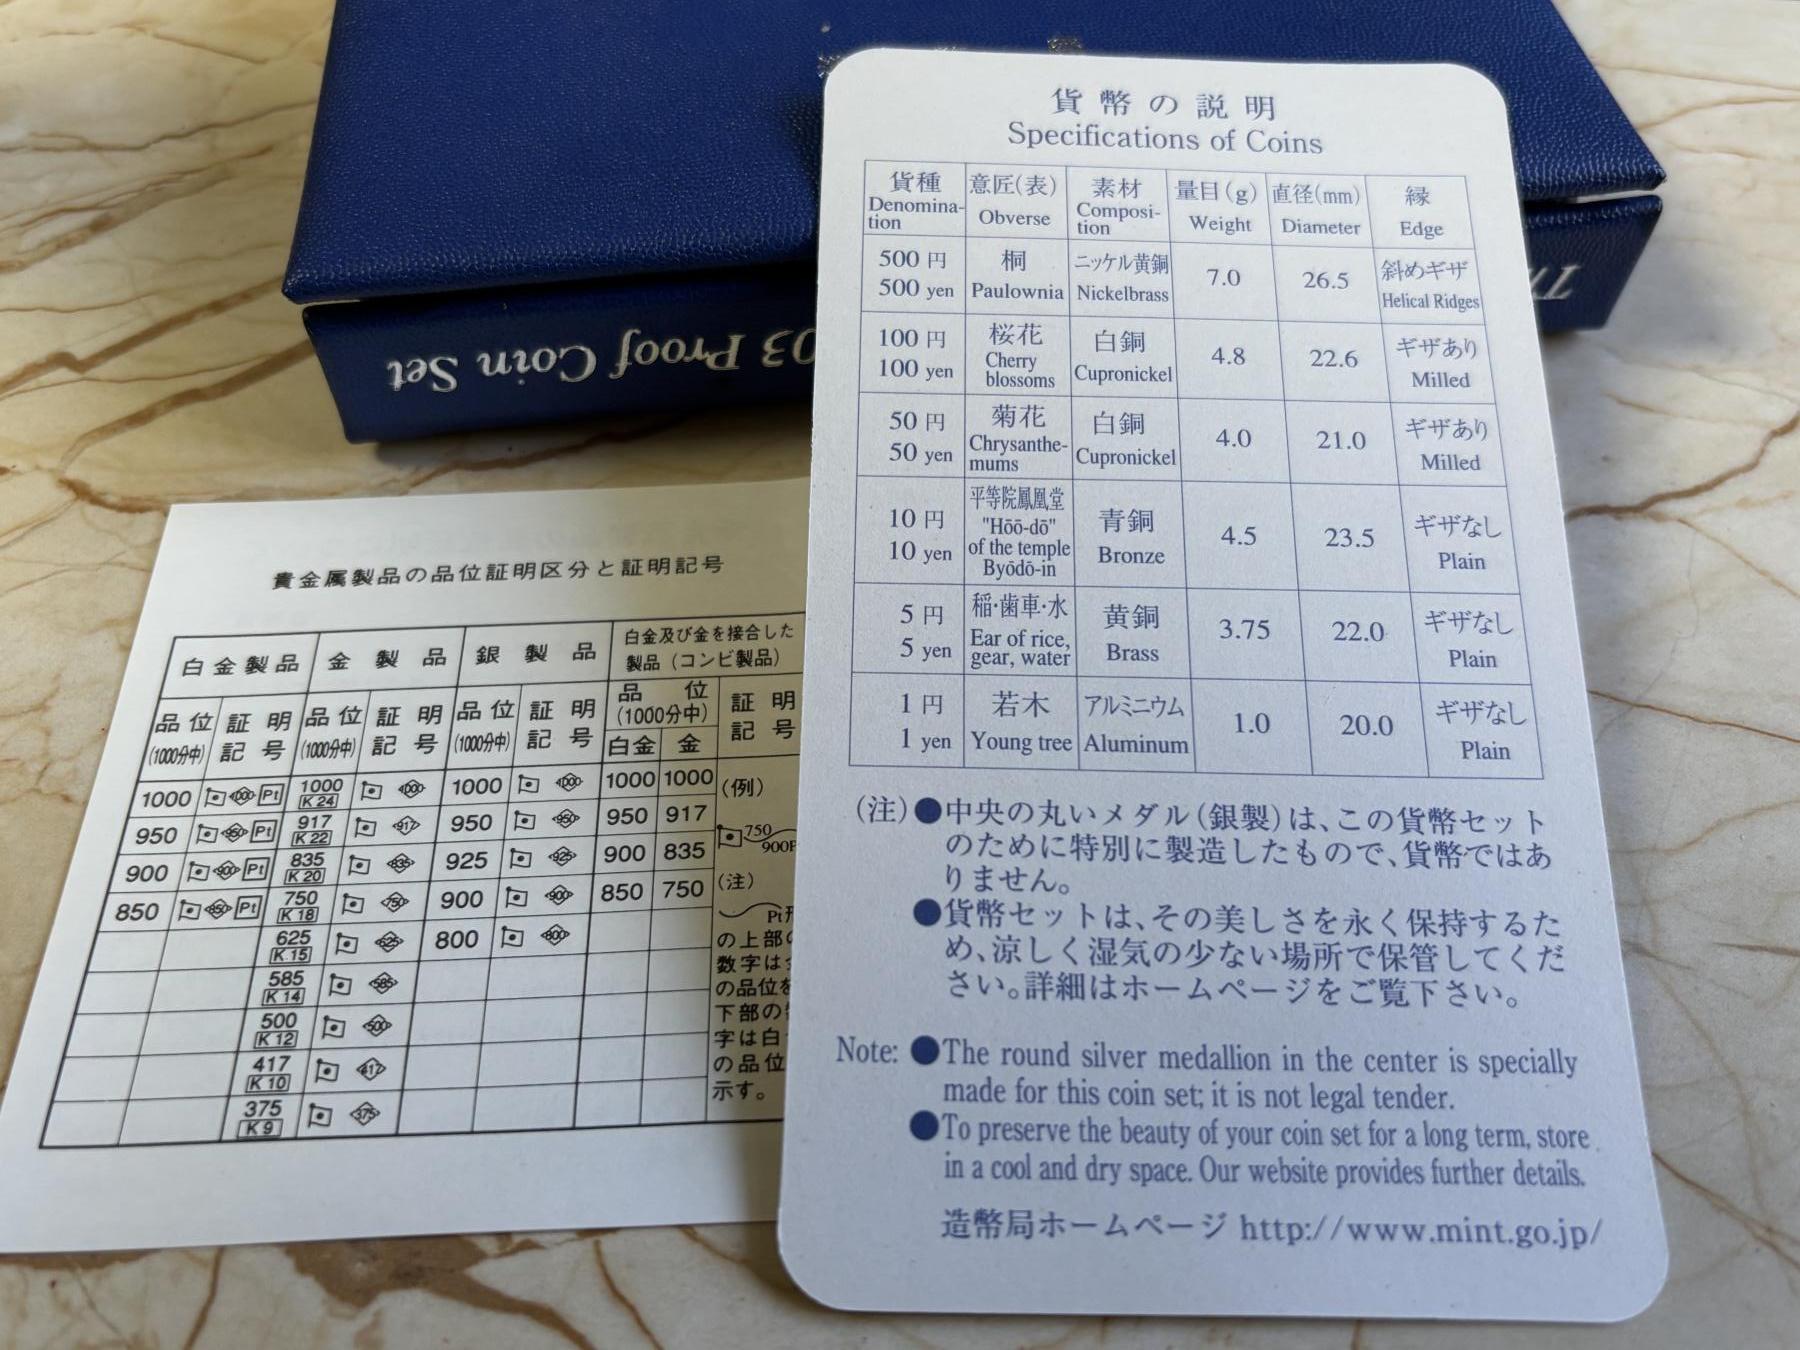 03 Proof Coin Set
貨幣の説明
Specifications of Coins
貨種 意匠(表) 素材 量目(g) 直径(mm) 縁
Denomina- Obverse Composi- Weight Diameter Edge
tion tion
500円 桐 ニッケル黄銅 7.0 26.5 斜めギザ
500 yen Paulownia Nickelbrass Helical Ridges
100円 桜花 白銅 4.8 22.6 ギザあり
100 yen Cherry Cupronickel Milled
blossoms
50円 菊花 白銅 4.0 21.0 ギザあり
50 yen Chrysanthe- Cupronickel Milled
mums
10円 平等院鳳凰堂 青銅 4.5 23.5 ギザなし
10 yen "Hōō-dō" Bronze Plain
of the temple
Byōdō-in
5円 稲・歯車・水 黄銅 3.75 22.0 ギザなし
5 yen Ear of rice, Brass Plain
gear, water
1円 若木 アルミニウム 1.0 20.0 ギザなし
1 yen Young tree Aluminum Plain
(注)●中央の丸いメダル(銀製)は、この貨幣セット
のために特別に製造したもので、貨幣ではあ
りません。
●貨幣セットは、その美しさを永く保持するた
め、涼しく湿気の少ない場所で保管してくだ
さい。詳細はホームページをご覧下さい。
Note: ●The round silver medallion in the center is specially
made for this coin set; it is not legal tender.
●To preserve the beauty of your coin set for a long term, store
in a cool and dry space. Our website provides further details.
造幣局ホームページ http://www.mint.go.jp/
貴金属製品の品位証明区分と証明記号
白金製品 金製品 銀製品 白金及び金を接合した
製品(コンビ製品)
品位 証明 品位 証明 品位 証明 品位 証明
(1000分中) 記号 (1000分中) 記号 (1000分中) 記号 (1000分中) 記号
白金 金
1000 1000 Pt 1000 1000 1000 1000 1000 1000 (例)
K 24
950 950 Pt 917 917 950 950 950 917 750
K 22 900P
900 900 Pt 835 835 925 925 900 835
K 20
850 850 Pt 750 750 900 900 850 750 (注)
K 18 Pt
625 625 800 800 の上部
K 15 数字は
585 585 の品位を
K 14 下部の
500 500 字は白
K 12 の品位
417 417 示す。
K 10
375 375
K 9